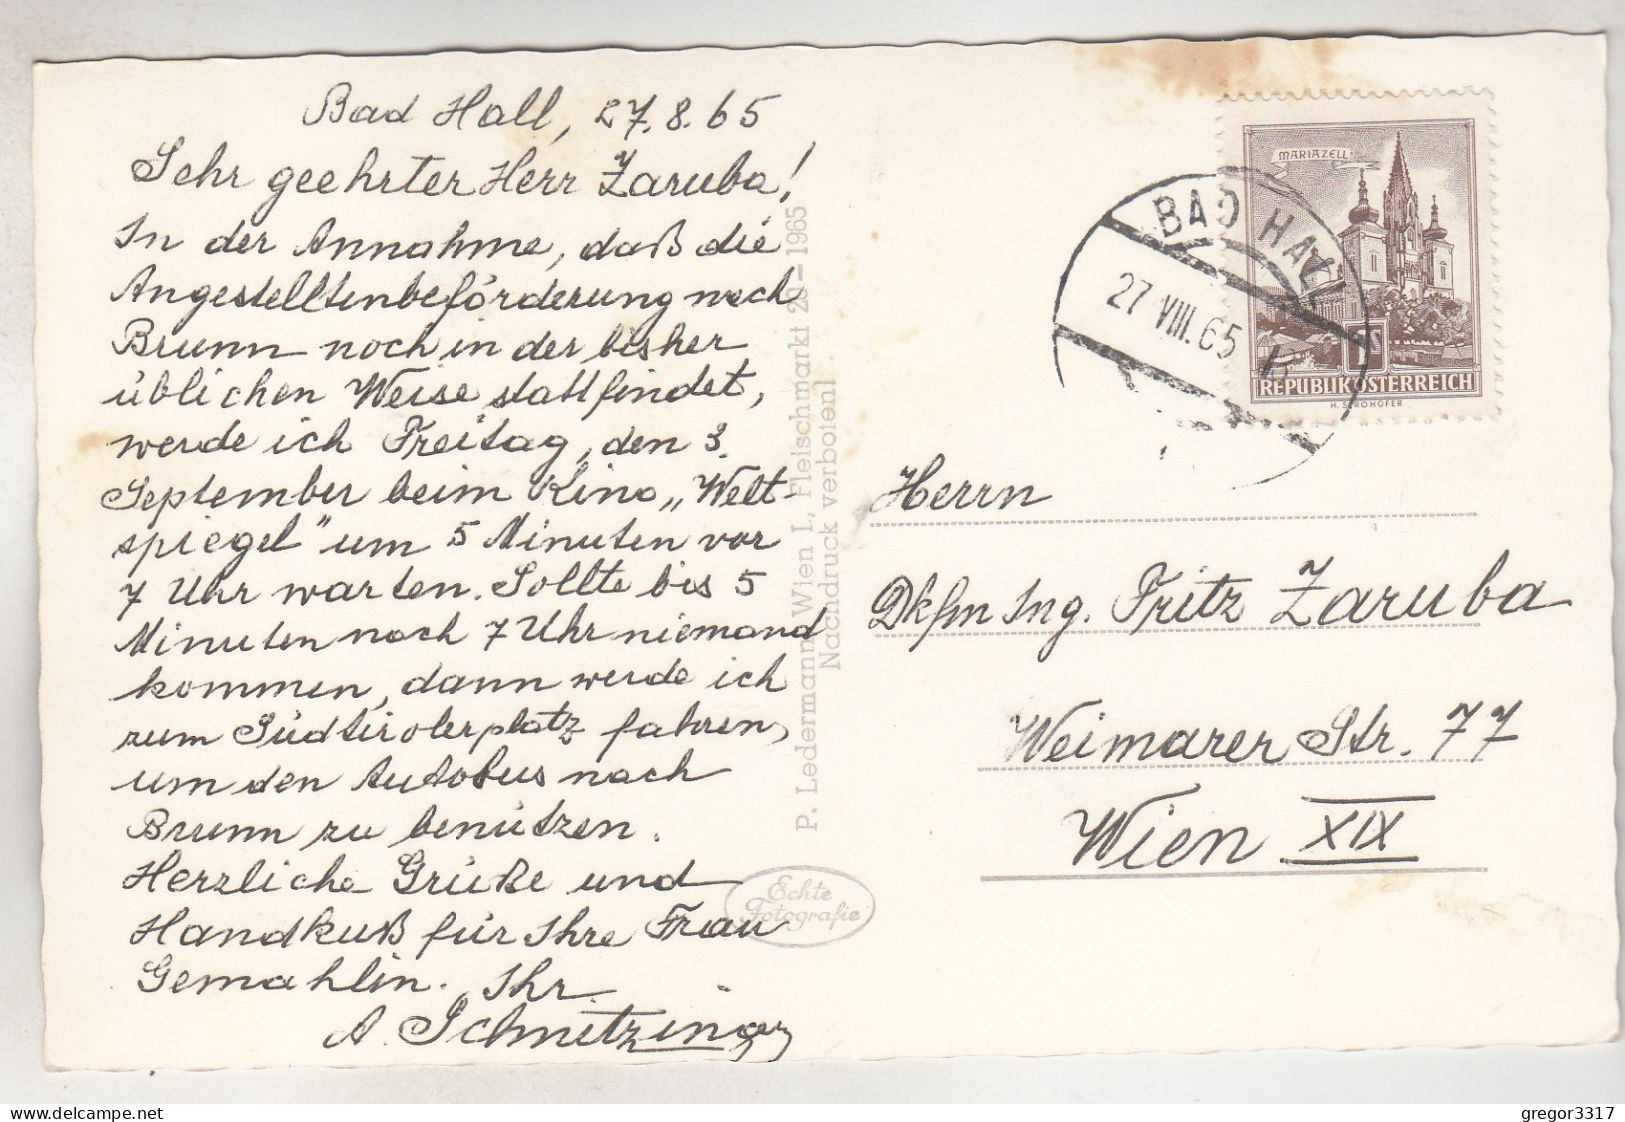 Bad Hall, 27.8.65
Sehr geehrter Herr Zaruba!
In der Annahme, daß die
Angestelltenbeförderung nach
Brunn noch in der bisher
üblichen Weise stattfindet,
werde ich Freitag, den 3.
September beim Kino „Welt-
spiegel" um 5 Minuten vor
7 Uhr warten. Sollte bis 5
Minuten nach 7 Uhr niemand
kommen, dann werde ich
zum Südtirolerplatz fahren,
um den Autobus nach
Brunn zu benützen.
Herzliche Grüße und
Handkuß für Ihre Frau
Gemahlin. Ihr
A. Schnitzinger
P. Ledermann, Wien I., Fleischmarkt 20 - 1965
Nachdruck verboten!
Echte
Fotografie
MARIAZELL
1S
REPUBLIK ÖSTERREICH
H. STROHOFER
BAD HALL
27 VIII. 65
Herrn
Dkfm Ing. Fritz Zaruba
Weimarer Str. 77
Wien XIX
gregor3317